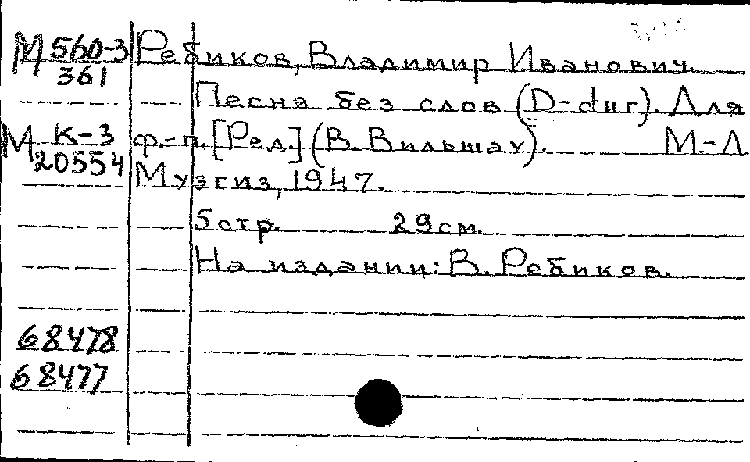 М 560-3/361 Ребиков, Владимир Иванович.
Песня без слов (D-dur). Для
М К-3/20554 ф.-п. [Ред.] (В. Вильшау). М-Л
Музгиз, 1947.
5 стр. 29 см.
На издании: В. Ребиков.
68478
68477